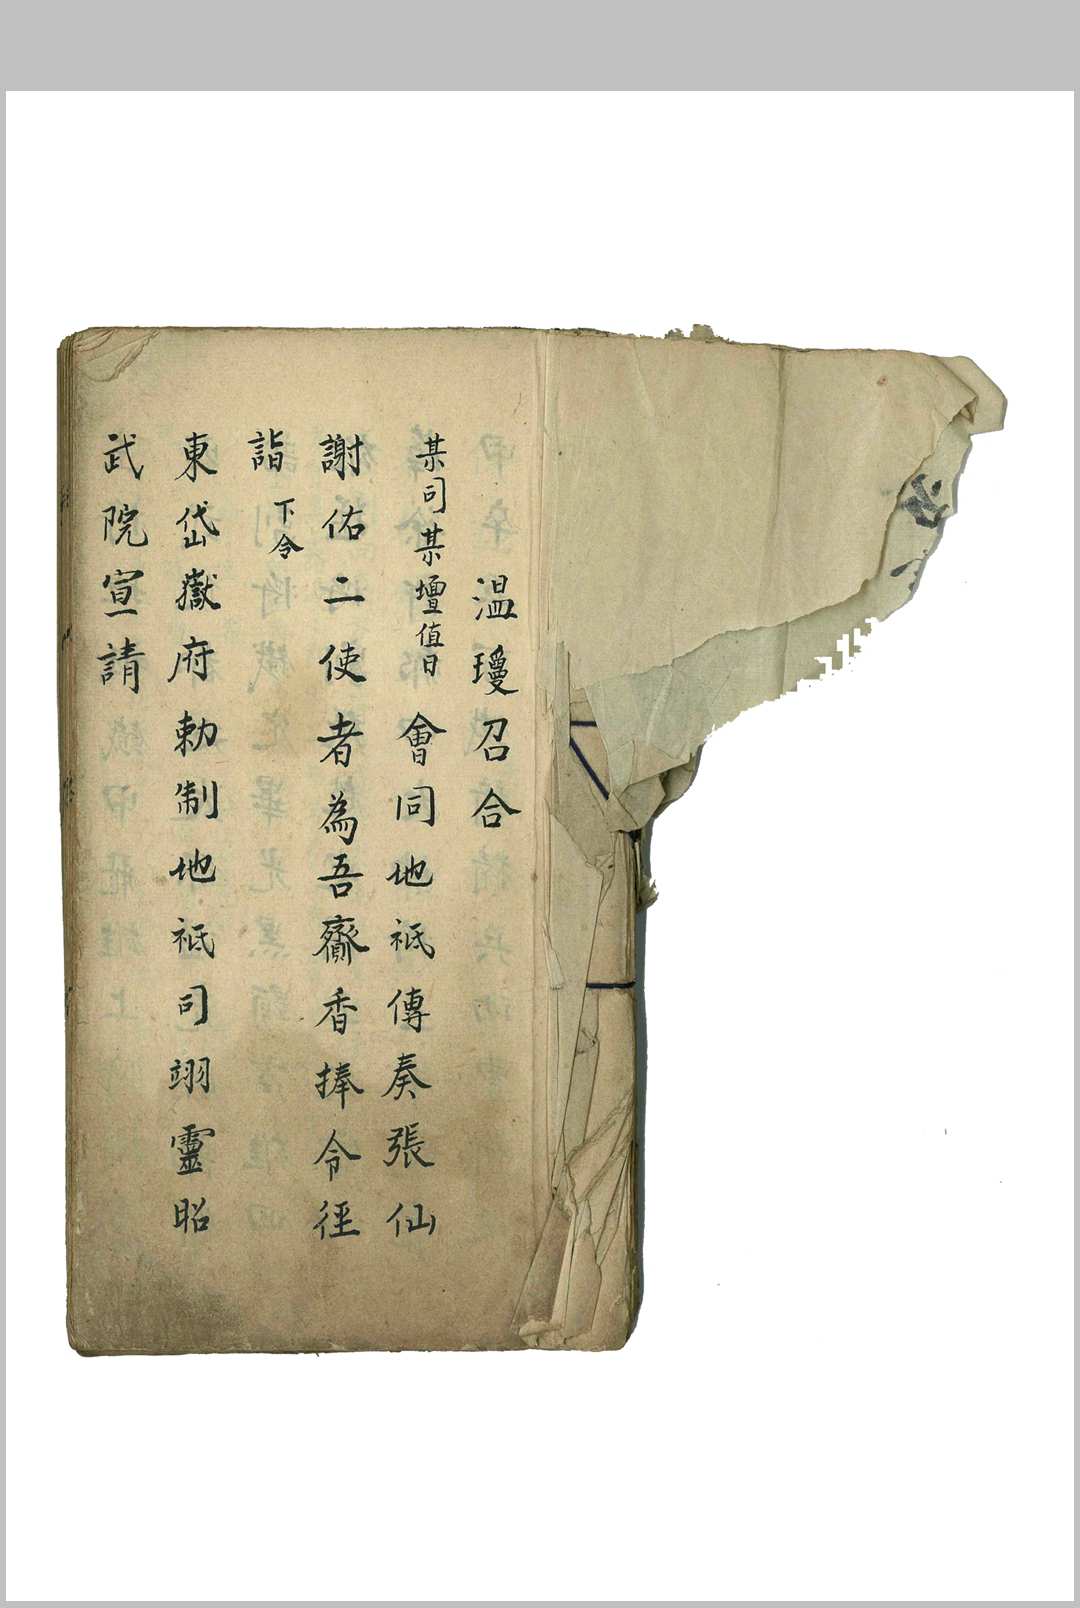 温瓊召合
某司某壇值日 會同地祇傳奏張仙
謝佑二使者為吾齎香捧令徑
詣 下令
東岱嶽府勅制地祇司翊靈昭
武院宣請